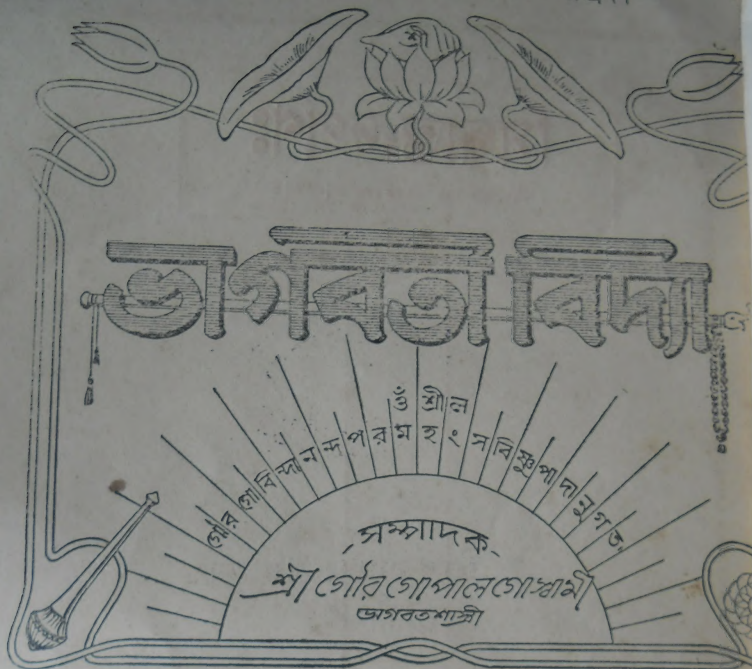 ভাগবতী বিদ্যা
ওঁ শ্রীল
গৌরগোবিন্দানন্দপরমহংসবিষ্ণুপাদানুগত
সম্পাদক
শ্রীগৌরগোপালগোস্বামী
ভাগবতশাস্ত্রী